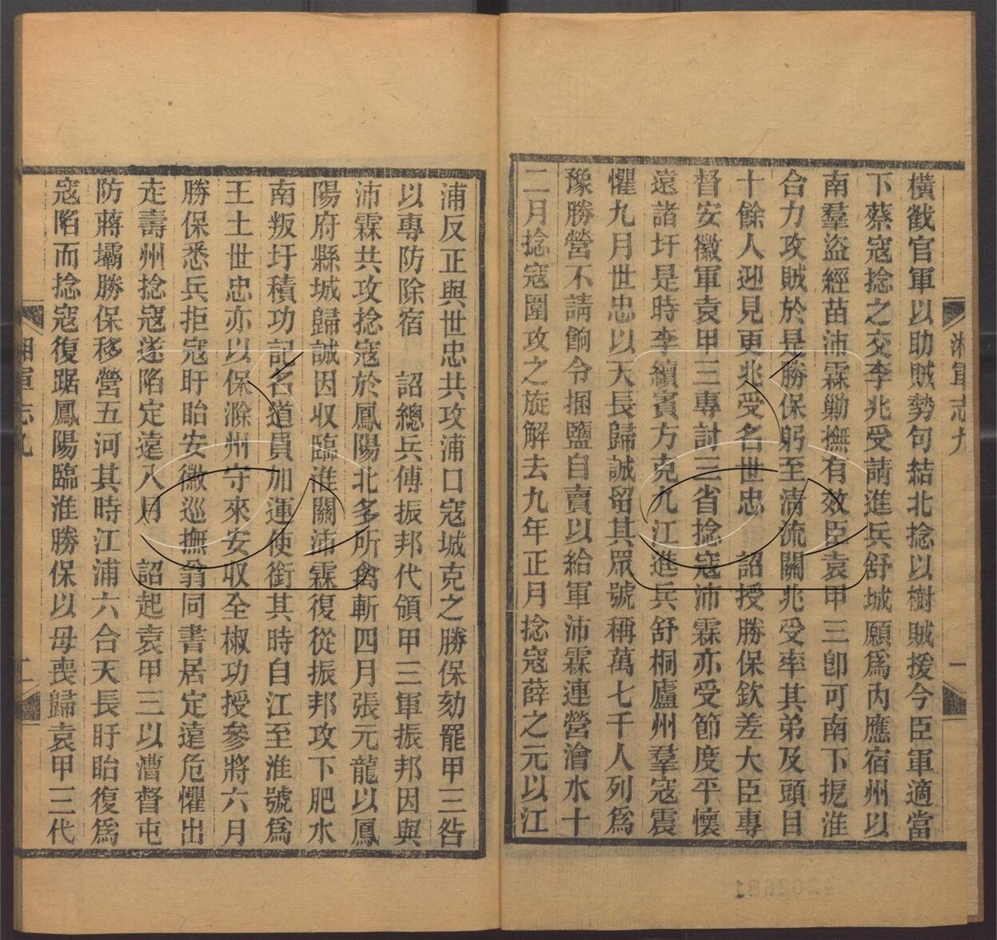 橫截官軍以助賊勢句結北捻以樹賊援今臣軍適當
下蔡寇捻之交李兆受請進兵舒城願爲內應宿州以
南羣盜經苗沛霖勦撫有效臣袁甲三卽可南下扼淮
合力攻賊於是勝保躬至清流關兆受率其弟及頭目
十餘人迎見更兆受名世忠 詔授勝保欽差大臣專
督安徽軍袁甲三專討三省捻寇沛霖亦受節度平懷
遠諸圩是時李續賓方克九江進兵舒桐廬州羣寇震
懼九月世忠以天長歸誠留其眾號稱萬七千人列爲
豫勝營不請餉令捆鹽自賣以給軍沛霖連營澮水十
二月捻寇圍攻之旋解去九年正月捻寇薛之元以江
湘軍志九
一
浦反正與世忠共攻浦口寇城克之勝保劾罷甲三咎
以專防除宿 詔總兵傅振邦代領甲三軍振邦因與
沛霖共攻捻寇於鳳陽北多所禽斬四月張元龍以鳳
陽府縣城歸誠因收臨淮關沛霖復從振邦攻下肥水
南叛圩積功記名道員加運使銜其時自江至淮號爲
王土世忠亦以保滁州守來安取全椒功授參將六月
勝保悉兵拒寇盱眙安徽巡撫翁同書居定遠危懼出
走壽州捻寇遂陷定遠八月 詔起袁甲三以漕督屯
防蔣壩勝保移營五河其時江浦六合天長盱眙復爲
寇陷而捻寇復踞鳳陽臨淮勝保以母喪歸袁甲三代
湘軍志九